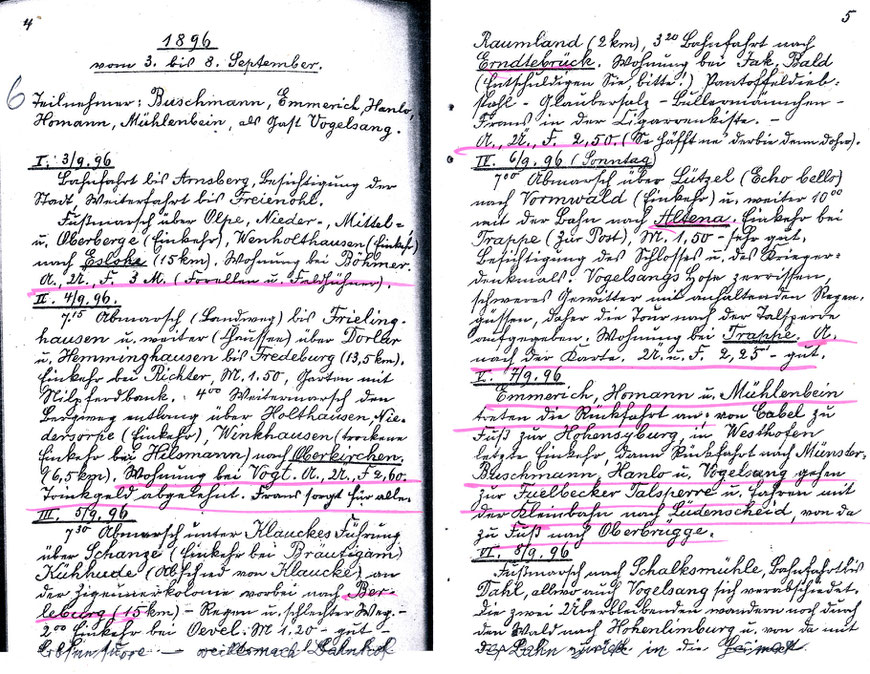 4
1896
vom 3. bis 8. September.
6 Teilnehmer: Buschmann, Emmerich, Hanlo,
Homann, Mühlenbein, als Gast Vogelsang.
I. 3/9.96
Bahnfahrt bis Arnsberg, Besichtigung der
Stadt, Weiterfahrt bis Freienohl.
Fußmarsch über Olpe, Nieder-, Mittel-
u. Oberberge (Einkehr), Wenholthausen (Einkehr)
nach Eslohe (15 km). Wohnung bei Böhmer.
A., Ü., F. 3 M. (Forellen u. Feldhühner).
II. 4/9.96.
7.15 Abmarsch (Landweg) bis Frieling-
hausen u. weiter (Chaussee) über Dorlar
u. Hemminghausen bis Fredeburg (13,5 km).
Einkehr bei Richter, M. 1.50, Garten mit
Nilpferdbank. 4.00 Weitermarsch den
Bergweg entlang über Holthausen Nie-
dersorpe (Einkehr), Winkhausen (trockene
Einkehr bei Hilsmann) nach Oberkirchen.
16,5 km). Wohnung bei Vogt. A., Ü., F 2,60.
Trinkgeld abgelehnt. Frans sorgt für alle.
III. 5/9.96
7.30 Abmarsch unter Klauckes Führung
über Schanze (Einkehr bei Bräutigam)
Kühhude (Abschied von Klaucke) an
der Zigeunerkolonie vorbei nach Ber-
leburg (15 km) - Regen u. schlechter Weg. -
2.00 Einkehr bei Oevel: M 1.20 - gut -
Erbsensuppe — weitermarsch Bahnhof
5
Raumland (2 km), 3.20 Bahnfahrt nach
Erndtebrück. Wohnung bei Jak. Bald
(Entschuldigen Sie, bitte!) Pantoffeldieb-
stahl - Glaubersalz - Bullermännchen -
Frans in der Zigarrenkiste. -
A., Ü., F. 2,50. (Se häfft ne derbie denn dohr).
IV. 6/9.96 (Sonntag)
7.00 Abmarsch über Lützel (Echo bello)
nach Vormwald (Einkehr) u. weiter 10.00
mit der Bahn nach Altena. Einkehr bei
Trappe (zur Post), M. 1,50 - sehr gut,
Besichtigung des Schlosses u. des Krieger-
denkmals. Vogelsangs Hose zerrissen,
schweres Gewitter mit anhaltenden Regen-
güssen, daher die Tour nach der Talsperre
aufgegeben. Wohnung bei Trappe. A.
nach der Karte. Ü. u. F. 2,25 - gut.
V. 7/9.96
Emmerich, Homann u. Mühlenbein
treten die Rückfahrt an: von Cabel zu
Fuß zur Hohensyburg, in Westhofen
letzte Einkehr, dann Rückfahrt nach Münster.
Buschmann, Hanlo u. Vogelsang gehen
zur Fuelbecker Talsperre u. fahren mit
der Kleinbahn nach Lüdenscheid, von da
zu Fuß nach Oberbrügge.
VI. 8/9.96
Fußmarsch nach Schalksmühle, Bahnfahrt bis
Dahl, allwo auch Vogelsang sich verabschiedet.
Die zwei Überlebenden wandern noch durch
den Wald nach Hohenlimburg u. von da mit
der Bahn zurück in die Heimat.